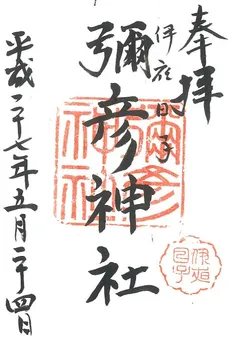 奉拝
伊夜日子
彌彦神社
彌彦神社
平成二十七年五月二十四日